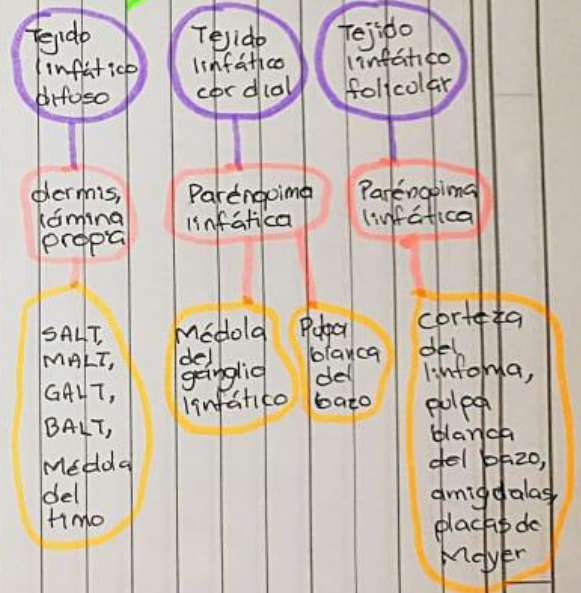 Tejido
linfático
difuso
Tejido
linfático
cordial
Tejido
linfático
folicolar
dermis,
lámina
propia
Parénquima
linfática
Parénquima
linfática
SALT,
MALT,
GALT,
BALT,
Médola
del
timo
Médola
del
gánglio
linfático
Pulpa
blanca
del
bazo
corteza
del
linfoma,
pulpa
blanca
del bazo,
amigdalas,
placas de
Meyer